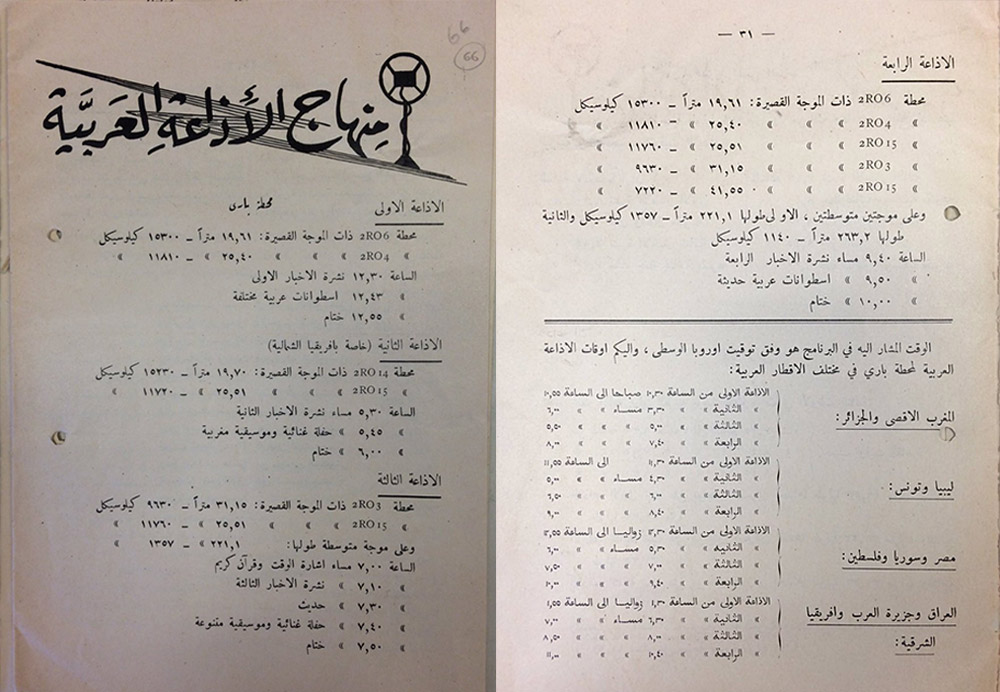 66
66
منهاج الأذاعة العَربيَّة
محطة باري
الاذاعة الاولى
محطة 2RO6 ذات الموجة القصيرة: ١٩,٦١ متراً — ١٥٣٠٠ كيلوسيكل
» 2RO4 » » » ٢٥,٤٠ » — ١١٨١٠ »
الساعة ١٢,٣٠ نشرة الاخبار الاولى
» ١٢,٤٣ اسطوانات عربية مختلفة
» ١٢,٥٥ ختام
الاذاعة الثانية (خاصة بافريقيا الشمالية)
محطة 2RO14 ذات الموجة القصيرة: ١٩,٧٠ متراً — ١٥٢٣٠ كيلوسيكل
» 2RO15 » » » ٢٥,٥١ » — ١١٧٢٠ »
الساعة ٥,٣٠ مساء نشرة الاخبار الثانية
» ٥,٤٥ » حفلة غنائية وموسيقية مغربية
» ٦,٠٠ » ختام
الاذاعة الثالثة
محطة 2RO3 ذات الموجة القصيرة: ٣١,١٥ متراً — ٩٦٣٠ كيلوسيكل
» 2RO15 » » » ٢٥,٥١ » — ١١٧٦٠ »
وعلى موجة متوسطة طولها: ٢٢١,١ » — ١٣٥٧ »
الساعة ٧,٠٠ مساء اشارة الوقت وقرآن كريم
» ٧,١٠ » نشرة الاخبار الثالثة
» ٧,٣٠ » حديث
» ٧,٤٠ » حفلة غنائية وموسيقية متنوعة
» ٧,٥٠ » ختام
— ٣١ —
الاذاعة الرابعة
محطة 2RO6 ذات الموجة القصيرة: ١٩,٦١ متراً — ١٥٣٠٠ كيلوسيكل
» 2RO4 » » » ٢٥,٤٠ » — ١١٨١٠ »
» 2RO15 » » » ٢٥,٥١ » — ١١٧٦٠ »
» 2RO3 » » » ٣١,١٥ » — ٩٦٣٠ »
» 2RO15 » » » ٤١,٥٥ » — ٧٢٢٠ »
وعلى موجتين متوسطتين، الاولى طولها ٢٢١,١ متراً — ١٣٥٧ كيلوسيكل والثانية
طولها ٢٦٣,٢ متراً — ١١٤٠ كيلوسيكل
الساعة ٩,٤٠ مساء نشرة الاخبار الرابعة
» ٩,٥٠ » اسطوانات عربية حديثة
» ١٠,٠٠ » ختام
الوقت المشار اليه في البرنامج هو وفق توقيت اوروبا الوسطى، واليكم اوقات الاذاعة
العربية لمحطة باري في مختلف الاقطار العربية:
المغرب الاقصى والجزائر:
الاذاعة الاولى من الساعة ١٠,٣٠ صباحا الى الساعة ١٠,٥٥
» الثانية » » ٣,٣٠ مساء » » ٦,٠٠
» الثالثة » » ٥,٠٠ » » » ٥,٥٠
» الرابعة » » ٧,٤٠ » » » ٨,٠٠
ليبيا وتونس:
الاذاعة الاولى من الساعة ١١,٣٠ الى الساعة ١١,٥٥
» الثانية » » ٤,٣٠ مساء » » ٥,٠٠
» الثالثة » » ٦,٠٠ » » » ٦,٥٠
» الرابعة » » ٨,٤٠ » » » ٩,٠٠
مصر وسوريا وفلسطين:
الاذاعة الاولى من الساعة ١٢,٣٠ زواليا الى الساعة ١٢,٥٥
» الثانية » » ٥,٣٠ مساء » » ٦,٠٠
» الثالثة » » ٧,٠٠ » » » ٧,٥٠
» الرابعة » » ٩,٤٠ » » » ١٠,٠٠
العراق وجزيرة العرب وافريقيا
الشرقية:
الاذاعة الاولى من الساعة ١,٣٠ زواليا الى الساعة ١,٥٥
» الثانية » » ٦,٣٠ مساء » » ٧,٠٠
» الثالثة » » ٨,٠٠ » » » ٨,٥٠
» الرابعة » » ١٠,٤٠ » » » ١١,٠٠